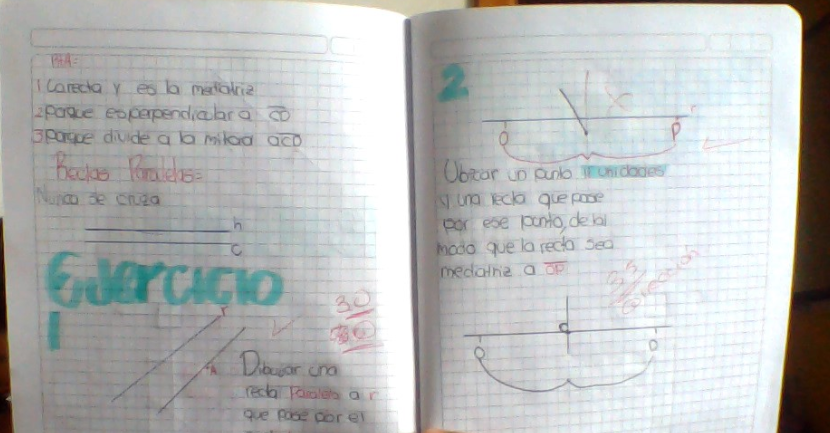 RTA:
1 La recta r es la mediatriz
2 porque es perpendicular a CD
3 porque divide a la mitad a CD
Rectas Paralelas:
Nunca se cruza
h
c
Ejercicio
1
r
3.0
A
Dibujar una
recta Paralela a r
que pase por el
2
r
O
P
Ubicar un punto unidades
y una recta que pase
por ese punto, de tal
modo que la recta sea
mediatriz a OP
3.5
Corrección